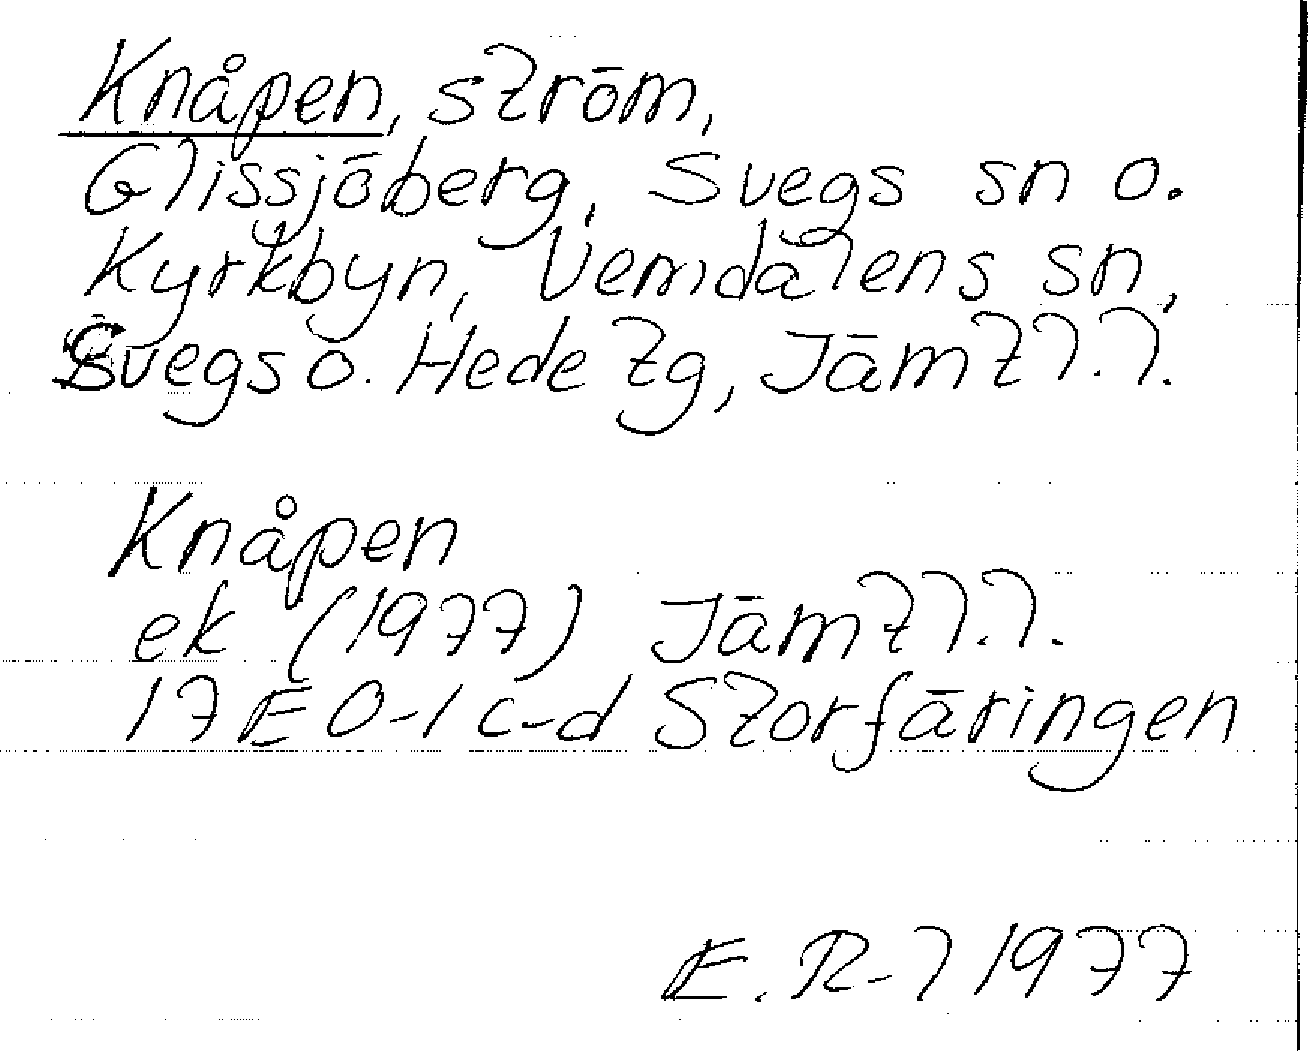 Knåpen, ström,
Glissjöberg, Svegs sn o.
Kyrkbyn, Vemdalens sn,
Svegs o. Hede tg, Jämtl. l.
Knåpen
ek (1977) Jämtl. l.
17E 0-1 c-d Storfäringen
E. R-l 1977